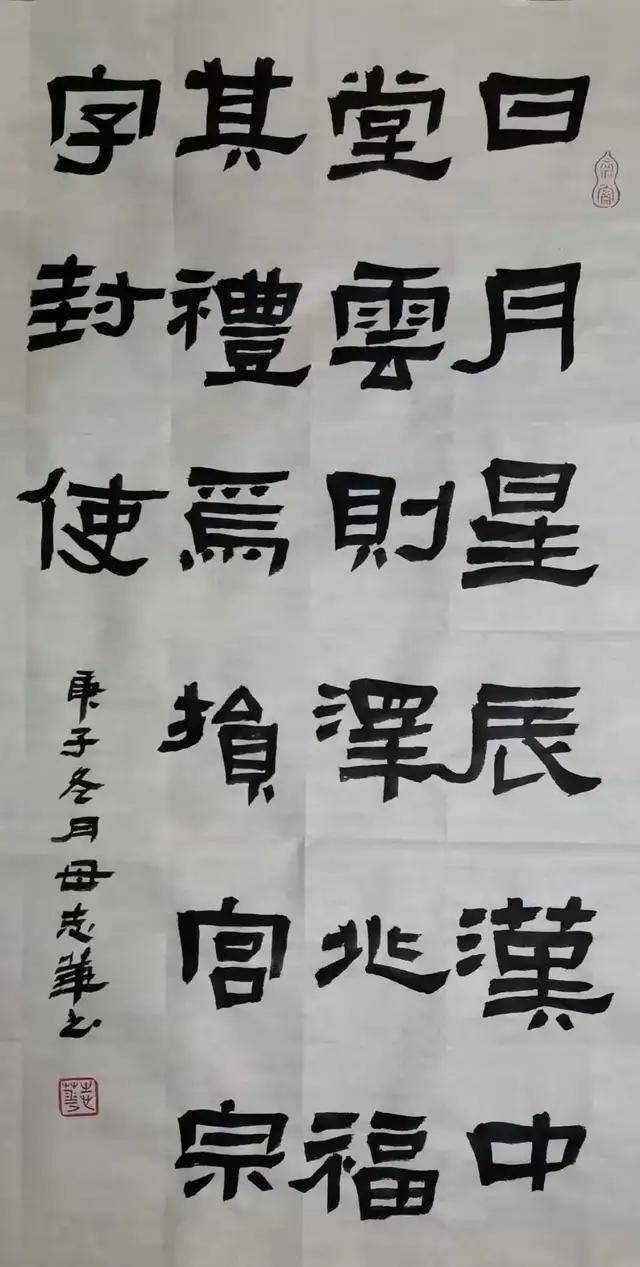 日月星辰漢中
堂雲則澤兆福
其禮焉損宮宗
字封使
庚子冬月毋志華书
志華